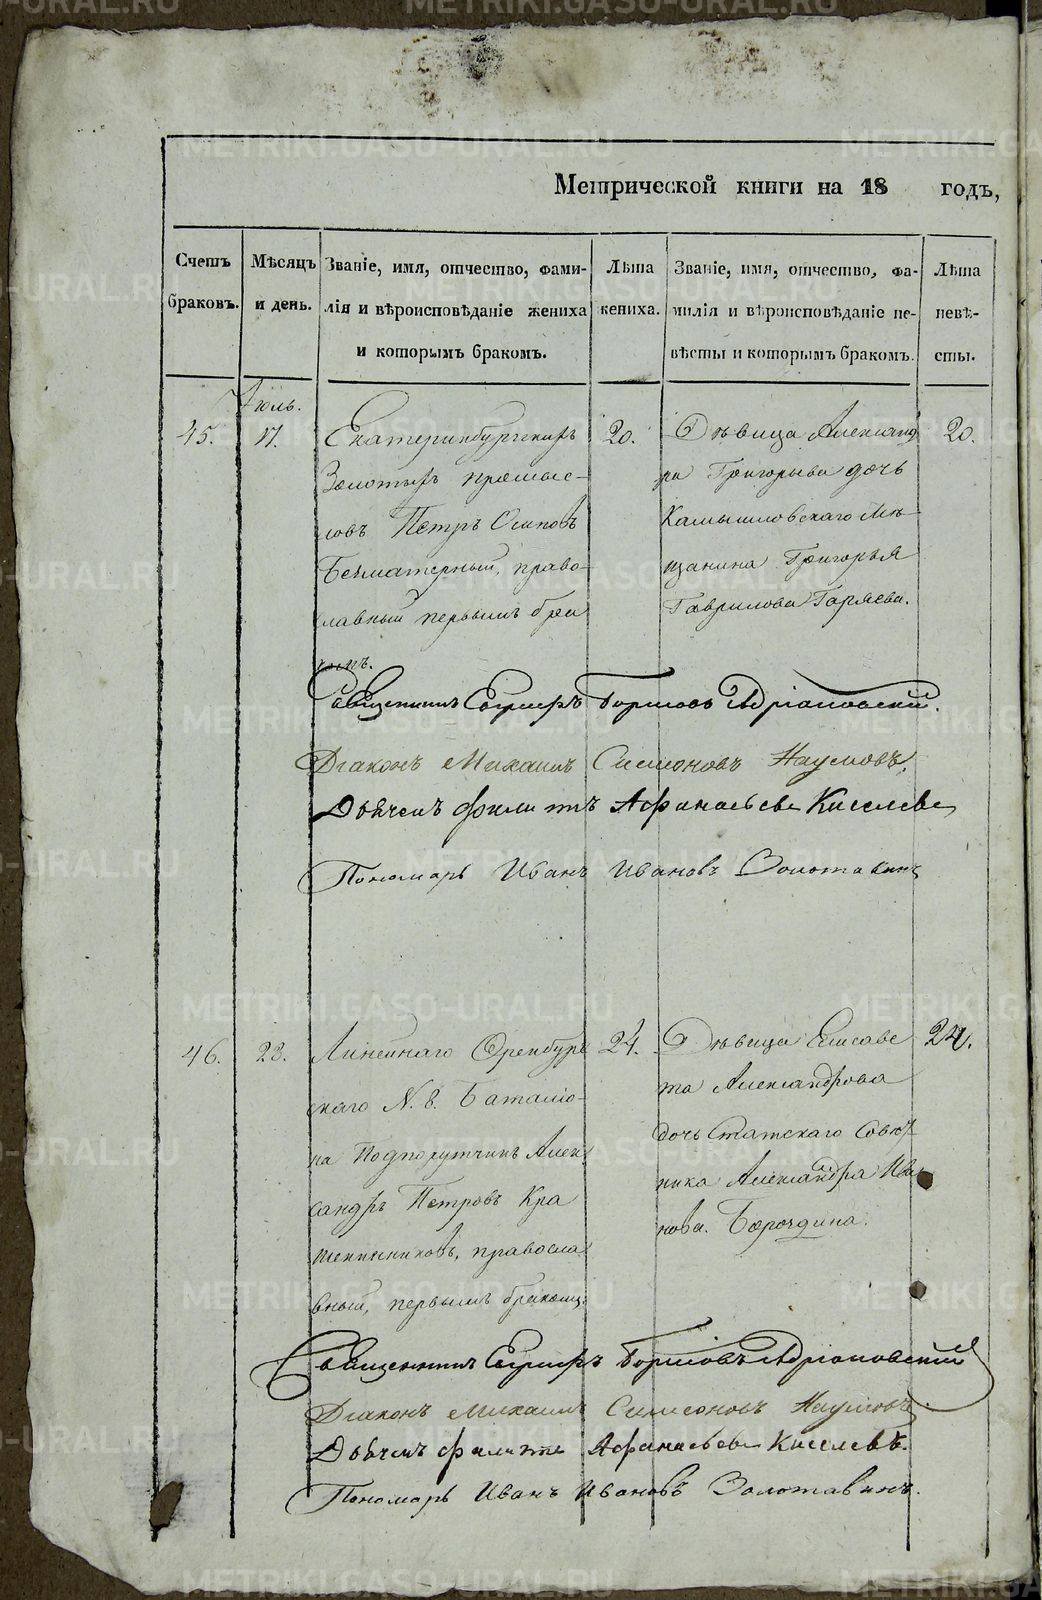 Метрической книги на 18 годъ,
Счетъ браковъ.
Мѣсяцъ и день.
Званіе, имя, отчество, фами-
лія и вѣроисповѣданіе жениха
и которымъ бракомъ.
Лѣта
жениха.
Званіе, имя, отчество, фа-
милія и вѣроисповѣданіе не-
вѣсты и которымъ бракомъ.
Лѣта
невѣ-
сты.
Іюль.
45.
17.
Екатеринбургскихъ
Золотыхъ промыс-
ловъ Петръ Осиповъ
право-
славный первымъ бра
комъ.
20.
Дѣвица Александ
ра Григорьева дочь
Камышловскаго Мѣ
щанина Григорья
Гаврилова Горяева.
20.
Священникъ Борисовъ Адріановскій.
Діаконъ Михаилъ Симеоновъ Наумовъ.
Дьячекъ Филиппъ Афанасьевъ Киселевъ
Пономарь Иванъ Ивановъ Золотавинъ
46.
23.
Линейнаго Оренбург
скаго N. 8. Баталіо-
на Подпорутчикъ Алек
сандръ Петровъ Кра
шенинниковъ, правосла
вный, первымъ бракомъ
24.
Дѣвица Елисаве
та Александрова
дочь Статскаго Совѣт
ника Александра Ива
нова. Бородина.
24.
Священникъ Борисовъ Адріановскій
Діаконъ Михаилъ Симеоновъ Наумовъ.
Дьячекъ Филиппъ Афанасьевъ Киселевъ.
Пономарь Иванъ Ивановъ Золотавинъ.
METRIKI.GASO-URAL.RU